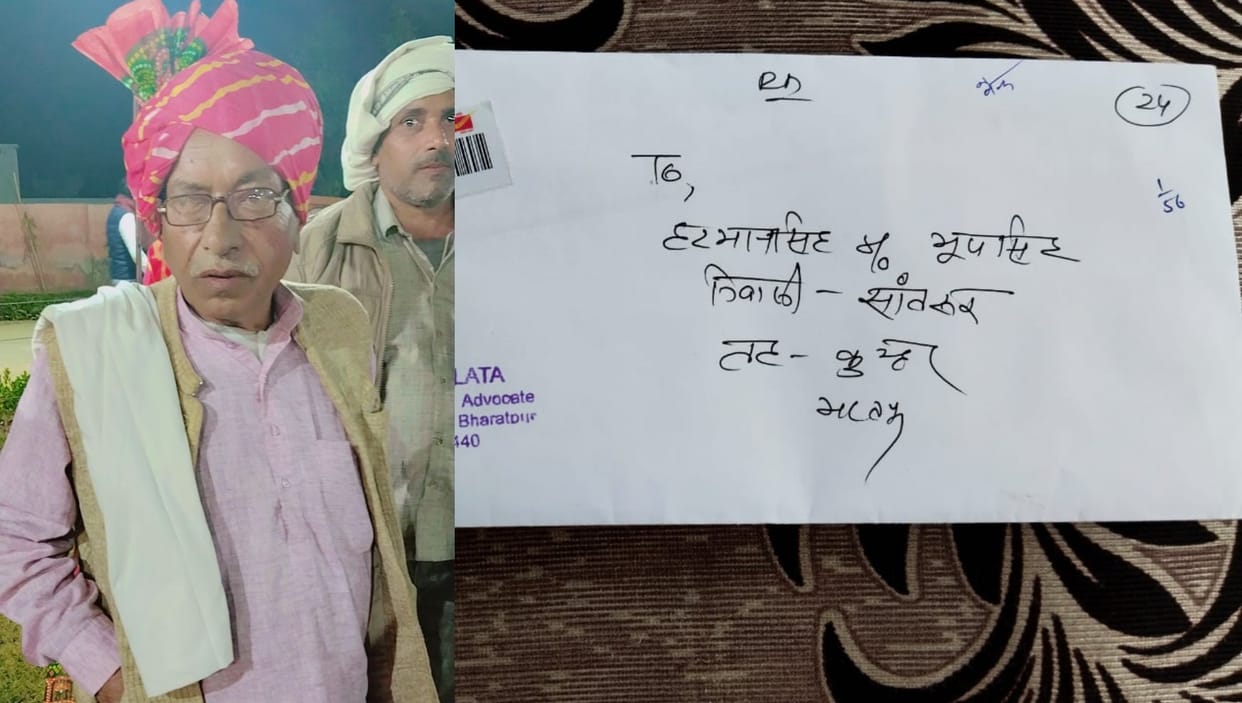 RD
24
To,
1/56
हरभानसिंह s/o भूपसिंह
निवासी - सांतरूक
तह - कुम्हेर
भरतपुर
LATA
Advocate
Bharatpur
440